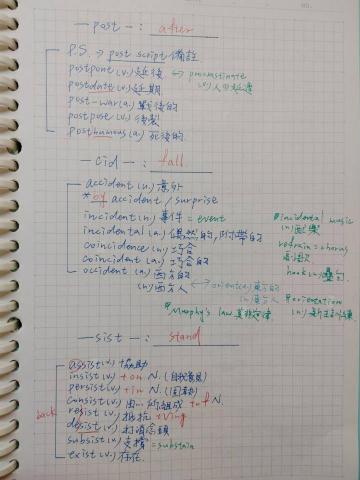 — post — : after
P.S. → post script 備註
postpone (v.) 延後 ↔ procrastinate
postdate (v.) 延期 (v.) 人的延遲
post-war (a.) 戰後的
postpose (v.)
posthumous (a.) 死後的
— cid — : fall
accident (n.) 意外
* by accident / surprise
incident (n.) 事件 = event
#incidental music
incidental (a.) 偶然的, 附帶的 (n) 配樂
coincidence (n.) 巧合 refrain = chorus
coincident (a.) 巧合的
occident (a.) 西方的 hook (n)
(n) 西方人 ↔ orient (a) 東方的
(n) 東方人 #orientation
#Murphy's law 莫非定律
— sist — : stand
assist (v.) 協助
insist (v.) + on N. (自我意見)
persist (v.) + in N.
consist (v.) 由…所組成 + of N.
back resist (v.) 抵抗 + Ving
desist (v.) 打消念頭
subsist (v.) 支撐 = sustain
exist (v.) 存在